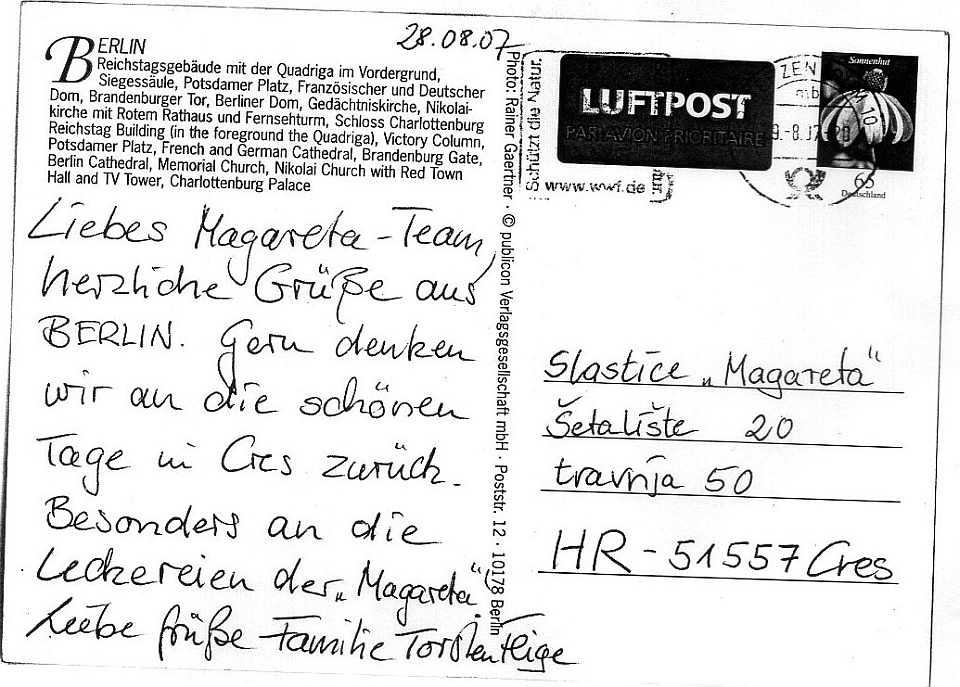 28.08.07
BERLIN
Reichstagsgebäude mit der Quadriga im Vordergrund,
Siegessäule, Potsdamer Platz, Französischer und Deutscher
Dom, Brandenburger Tor, Berliner Dom, Gedächtniskirche, Nikolai-
kirche mit Rotem Rathaus und Fernsehturm, Schloss Charlottenburg
Reichstag Building (in the foreground the Quadriga), Victory Column,
Potsdamer Platz, French and German Cathedral, Brandenburg Gate,
Berlin Cathedral, Memorial Church, Nikolai Church with Red Town
Hall and TV Tower, Charlottenburg Palace
Liebes Magareta-Team,
herzliche Grüße aus
BERLIN. Gern denken
wir an die schönen
Tage in Cres zurück.
Besonders an die
Leckereien der „Magareta“.
Liebe Grüße Familie Torsten
Photo: Rainer Gaertner · © publicon Verlagsgesellschaft mbH · Poststr. 12 · 10178 Berlin
Schützt die Natur
www.wwf.de
LUFTPOST
PAR AVION PRIORITAIRE
Sonnenhut
65
Deutschland
Slastice „Magareta“
Šetalište 20
travnja 50
HR - 51557 Cres